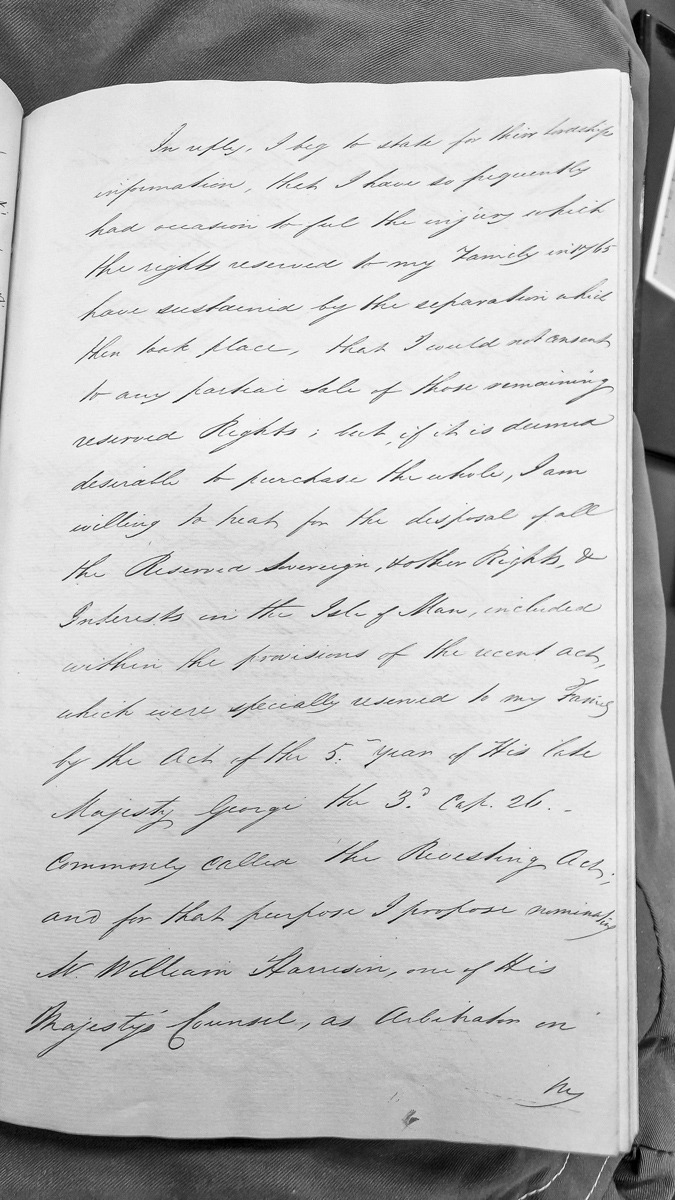 In reply, I beg to state for their Lordships
information, that I have so frequently
had occasion to feel the injury which
the rights reserved to my Family in 1765
have sustained by the separation which
then took place, that I would not consent
to any partial Sale of those remaining
reserved Rights; but, if it is deemed
desirable to purchase the whole, I am
willing to treat for the disposal of all
the Reserved Sovereign, & other Rights, &
Interests in the Isle of Man, included
within the provisions of the recent act,
which were specially reserved to my Family
by the Act of the 5. year of His late
Majesty George the 3.d Cap. 26. -
Commonly called the Revesting Act;
and for that purpose I propose nominating
Mr. William Harrison, one of His
Majesty's Counsel, as Arbitrator on
my